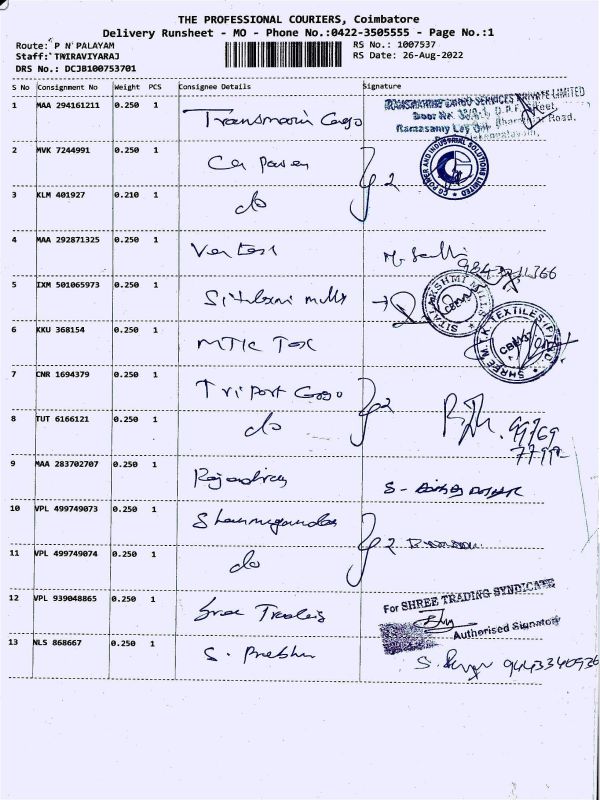 THE PROFESSIONAL COURIERS, Coimbatore
Delivery Runsheet - MO - Phone No.:0422-3505555 - Page No.:1
Route: P N PALAYAM
RS No.: 1007537
Staff: TWIRAVIYARAJ
RS Date: 26-Aug-2022
DRS No.: DCJB100753701
S No Consignment No Weight PCS Consignee Details Signature
1 MAA 294161211 0.250 1 Transmarin Cargo
TRANSMARINE CARGO SERVICES PRIVATE LIMITED
2 MVK 7244991 0.250 1
CG POWER AND INDUSTRIAL SOLUTIONS LIMITED
3 KLM 401927 0.210 1 do
4 MAA 292871325 0.250 1
5 IXM 501065973 0.250 1
SITALAKSHMI MILLS
6 KKU 368154 0.250 1 MTK Tex
SHREE M.T.K. TEXTILES (P) LTD
7 CNR 1694379 0.250 1 Triport Cargo 2
8 TUT 6166121 0.250 1 do
9 MAA 283702707 0.250 1
10 VPL 499749073 0.250 1 2
11 VPL 499749074 0.250 1 do
12 VPL 939048865 0.250 1 Sree Traders
For SHREE TRADING SYNDICATE
Authorised Signatory
13 NLS 868667 0.250 1 S. Prabhu